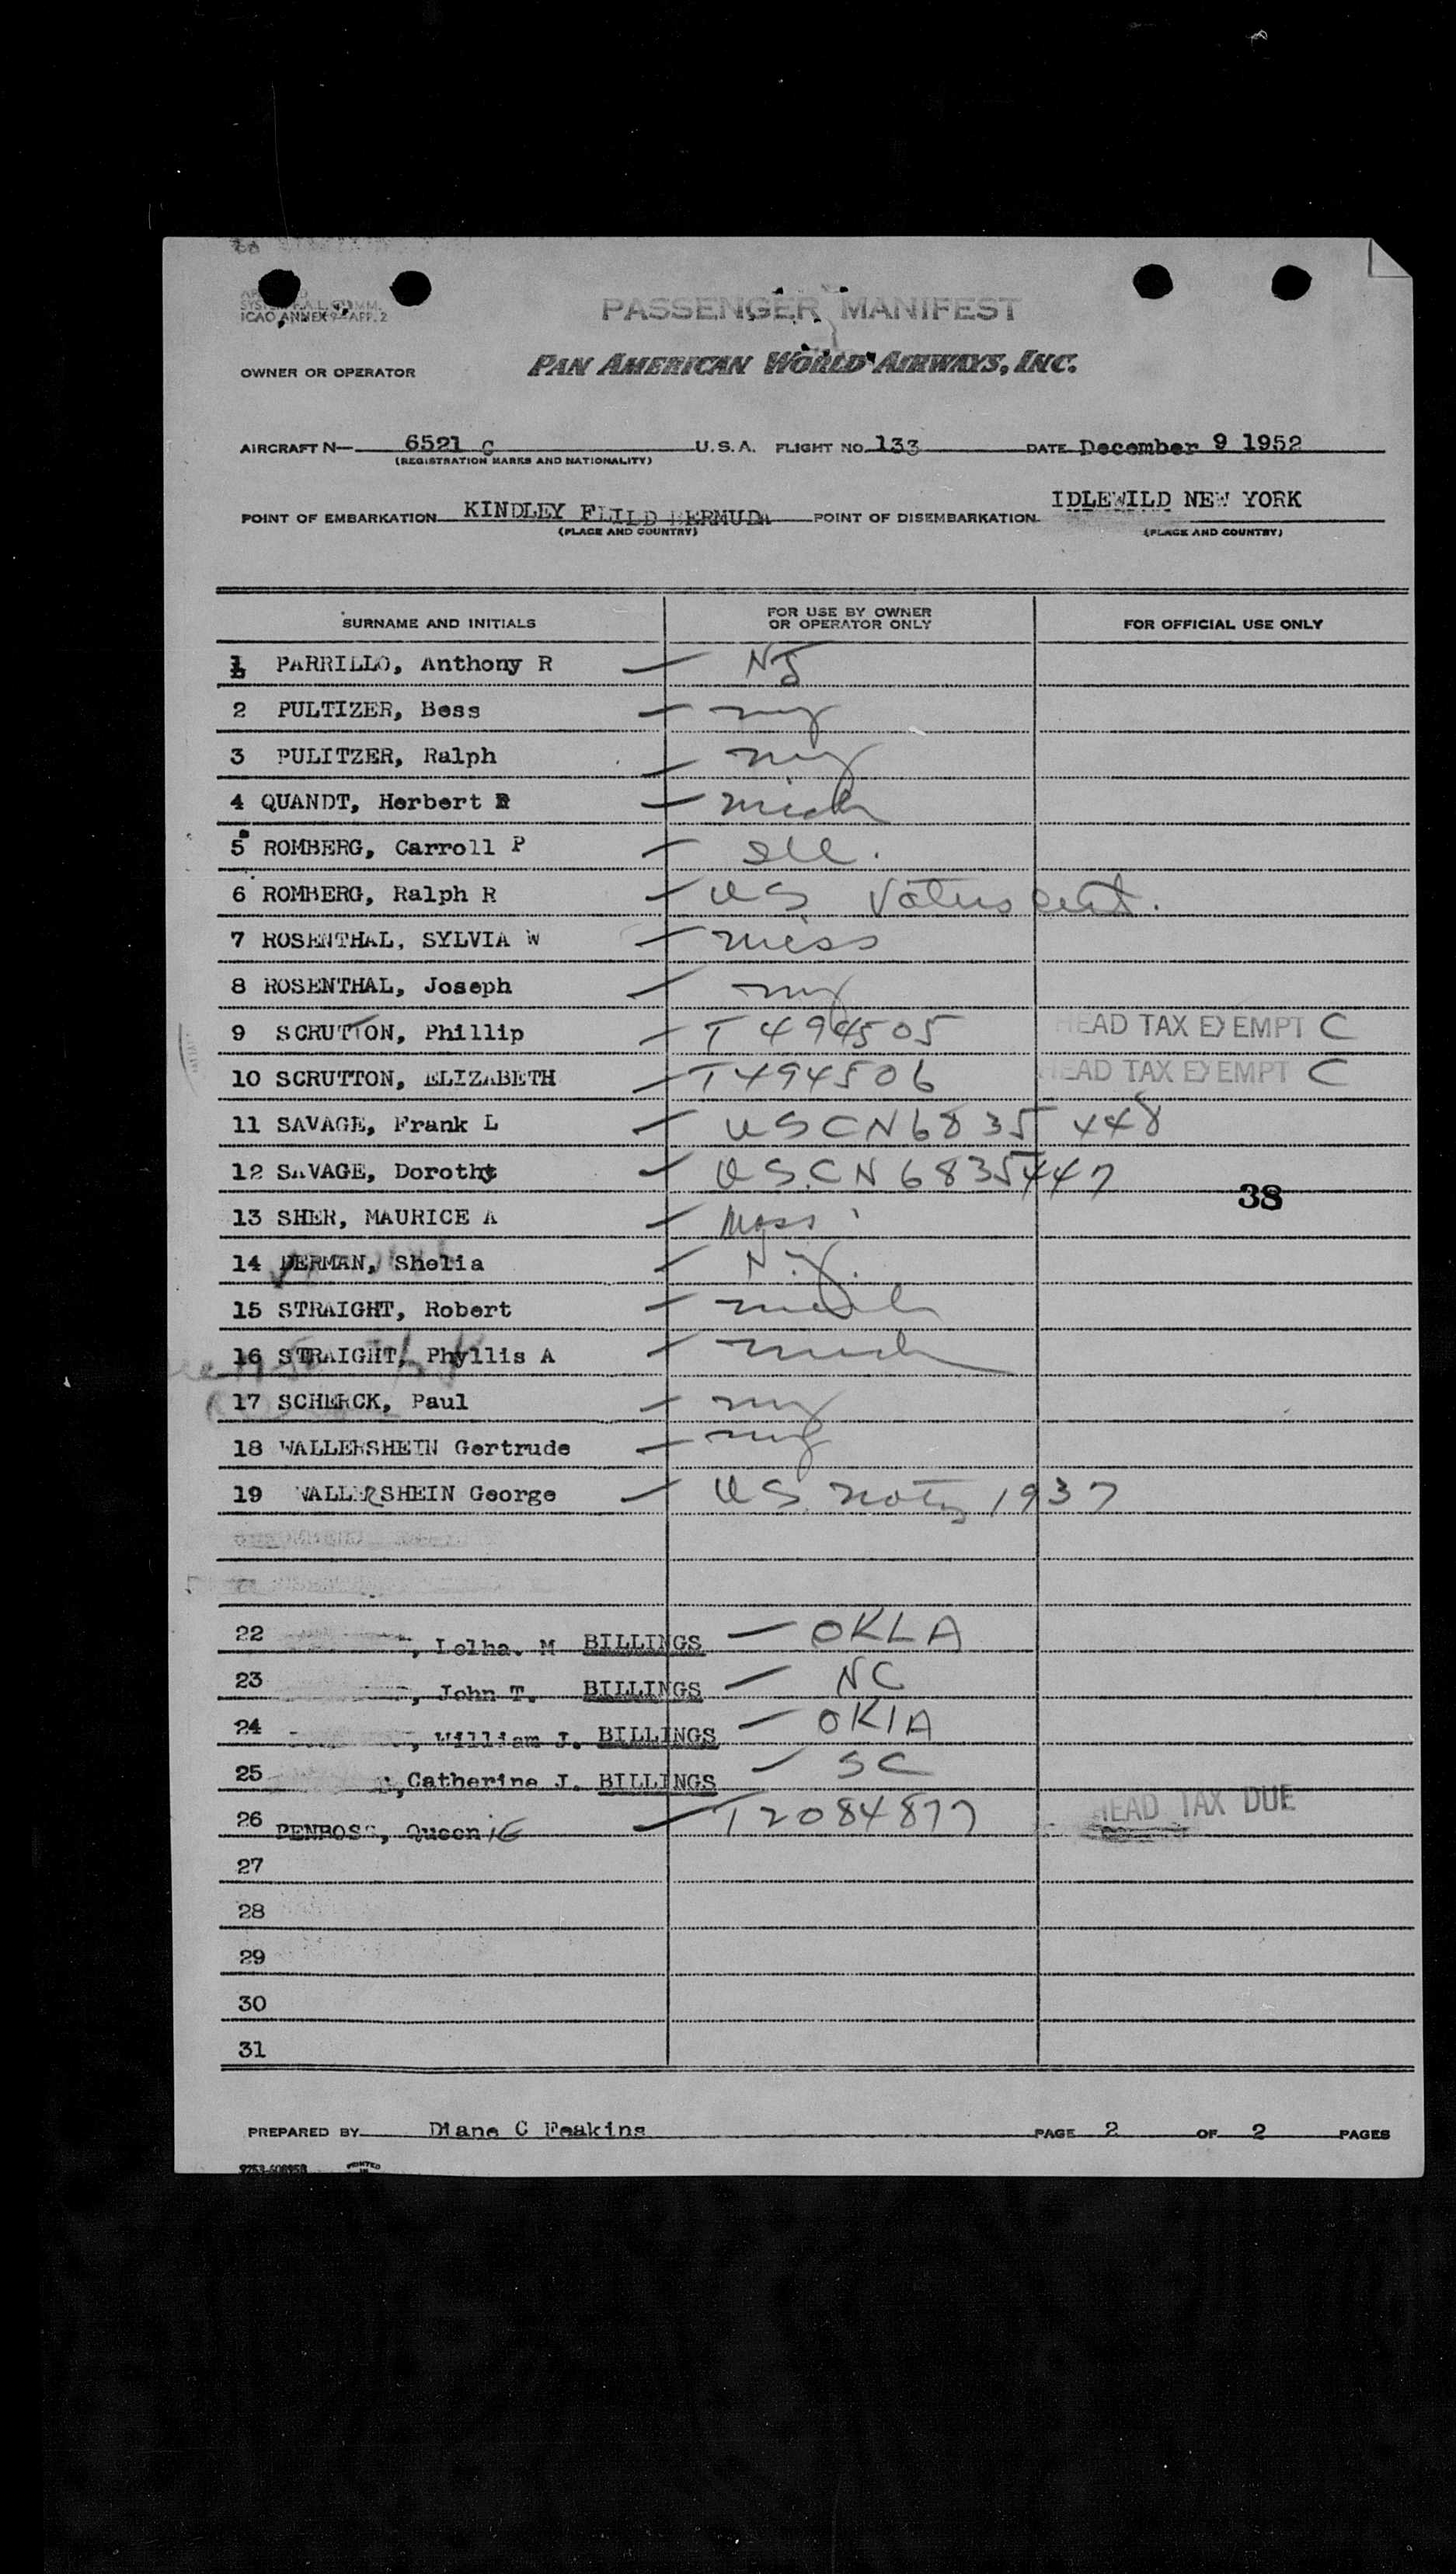 PASSENGER MANIFEST
ICAO ANNEX 9 APP. 2
OWNER OR OPERATOR PAN AMERICAN WORLD AIRWAYS, INC.
AIRCRAFT N— 6521 C U.S.A. FLIGHT NO. 133 DATE December 9 1952
(REGISTRATION MARKS AND NATIONALITY)
POINT OF EMBARKATION KINDLEY FEILD BERMUDA POINT OF DISEMBARKATION IDLEWILD NEW YORK
(PLACE AND COUNTRY) (PLACE AND COUNTRY)
SURNAME AND INITIALS FOR USE BY OWNER OR OPERATOR ONLY FOR OFFICIAL USE ONLY
1 PARRILLO, Anthony R — NJ
2 PULTIZER, Bess — ny
3 PULITZER, Ralph — ny
4 QUANDT, Herbert R — mich
5 ROMBERG, Carroll P — Ill.
6 ROMBERG, Ralph R — US Voters cert.
7 ROSENTHAL, SYLVIA W — miss
8 ROSENTHAL, Joseph — ny
9 SCRUTTON, Phillip — T 494505 HEAD TAX EXEMPT C
10 SCRUTTON, ELIZABETH — T494506 HEAD TAX EXEMPT C
11 SAVAGE, Frank L — USCN6835448
12 SAVAGE, Dorothy — US.CN6835447
38
13 SHER, MAURICE A — Mass
14 DERMAN, Shelia — N.Y.
15 STRAIGHT, Robert — mich
16 STRAIGHT, Phyllis A — mich
17 SCHERCK, Paul — ny
18 WALLERSHEIN Gertrude — ny
19 WALLERSHEIN George — US. natz 1937
22 , Lelha. M BILLINGS — OKLA
23 , John T. BILLINGS — NC
24 , William J. BILLINGS — OKLA
25 , Catherine J. BILLINGS — SC
26 PENROSE, Queenie — T2084877 HEAD TAX DUE
27
28
29
30
31
PREPARED BY Diane C Feakins PAGE 2 OF 2 PAGES
PRINTED